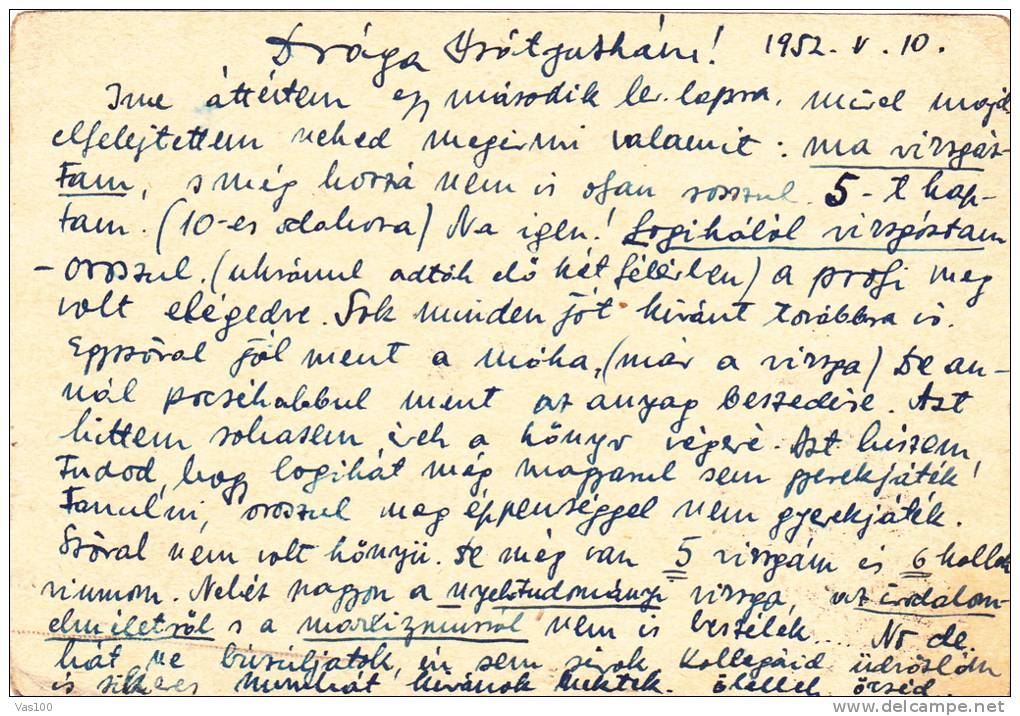 Drága! 1952. V. 10.
Ime áttértem egy második lev. lapra, mivel majd
elfelejtettem neked megirni valamit: ma vizsgáz-
tam, s még hozzá nem is olyan rosszul. 5-t kap-
tam. (10-es odahaza) Na igen! Logikából vizsgáztam
- oroszul. (ukránul adták elő két félévben) a profi meg
volt elégedve. Sok minden jót kivánt továbbra is.
Egyszóval jól ment a móka, (már a vizsga) De an-
nál pocsékabbul ment az anyag beszedése. Azt
hittem sohasem érek a könyv végére. Azt hiszem,
Tudod, hogy logikát még magyarul sem gyerekjáték
Tanulni, oroszul meg éppenséggel nem gyerekjáték.
Szóval nem volt könyü. De még van 5 vizsgám és 6 kollok
viumom. Nehéz nagyon a nyelvtudományi vizsga, az irodalom-
elméletről s a marxizmusról nem is beszélek... No de
hát ne búsúljatok, én sem sirok. Kollegáid üdvözlöm
is sikeres munkát kivánok nektek. Ölellek
Vas100
www.delcampe.net